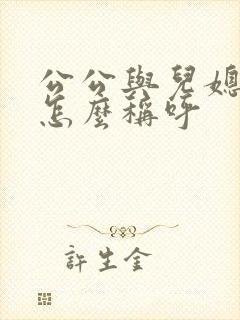 公公與兒媳
怎麼稱呼
許生金